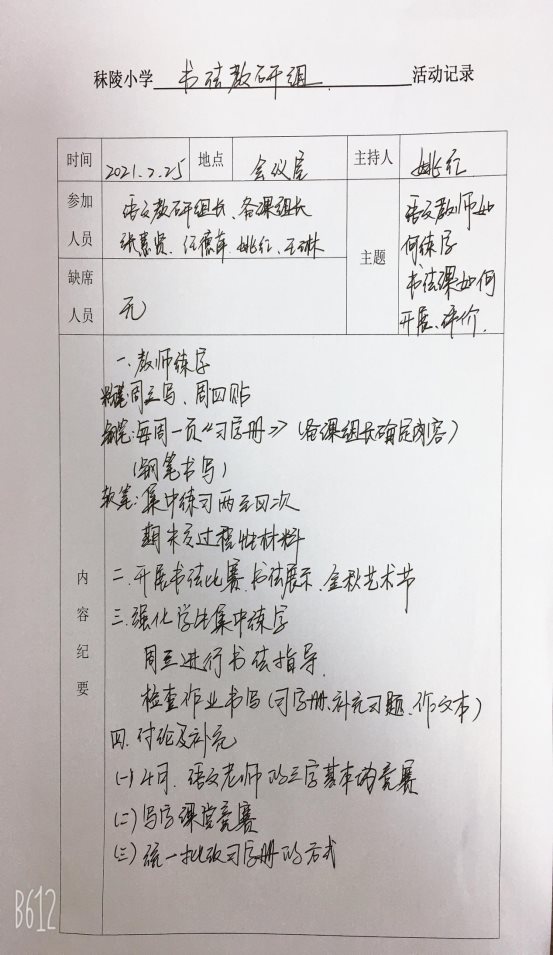 秣陵小学 书法教研组 活动记录
时间 2021.2.25 地点 会议室 主持人 姚红
参加人员 语文教研组长、备课组长
张惠贤、任德萍、姚红、王琳
主题 语文教师如
何练字
书法课如何
开展、评价.
缺席人员 无
内容纪要
一.教师练字
粉笔:周三写、周四贴
钢笔:每周一页《习字册》(备课组长确定内容)
(钢笔书写)
软笔:集中练习两至四次
期末交过程性材料
二.开展书法比赛.书法展示.金秋艺术节
三.强化学生集中练字
周五进行书法指导.
检查作业书写(习字册、补充习题、作文本)
四.讨论及补充
(一)4月.语文老师的三字基本功竞赛
(二)写字课堂竞赛
(三)统一批改习字册的方式
B612